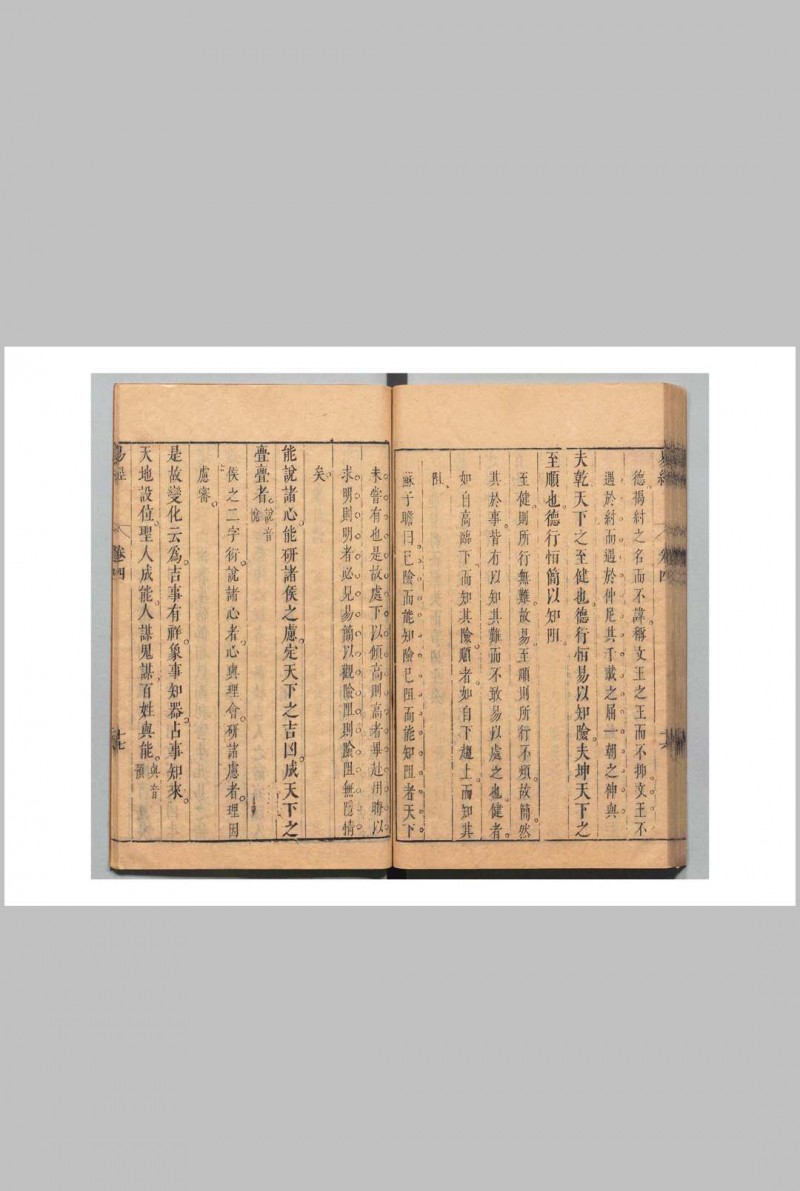 德揭紂之名而不諱稱文王之王而不抑文王不
遇於紂而遇於仲尼其千載之屈一朝之伸與
夫乾天下之至健也德行恒易以知險夫坤天下之
至順也德行恒簡以知阻
至健則所行無難故易至順則所行不煩故簡然
其於事皆有以知其難而不敢易以處之也健者
如自高臨下而知其險順者如自下趨上而知其
阻
蘇子瞻曰已險而能知險已阻而能知阻者天下
未嘗有也是故處下以傾高則高者畢赴用晦以
求明則明者必見易簡以觀險阻則險阻無隱情
矣
能說諸心能研諸侯之慮定天下之吉凶成天下之
亹亹者說音悅
侯之二字衍說諸心者心與理會研諸慮者理因
慮審
是故變化云為吉事有祥象事知器占事知來
天地設位聖人成能人謀鬼謀百姓與能與音預
易經 卷四 十七